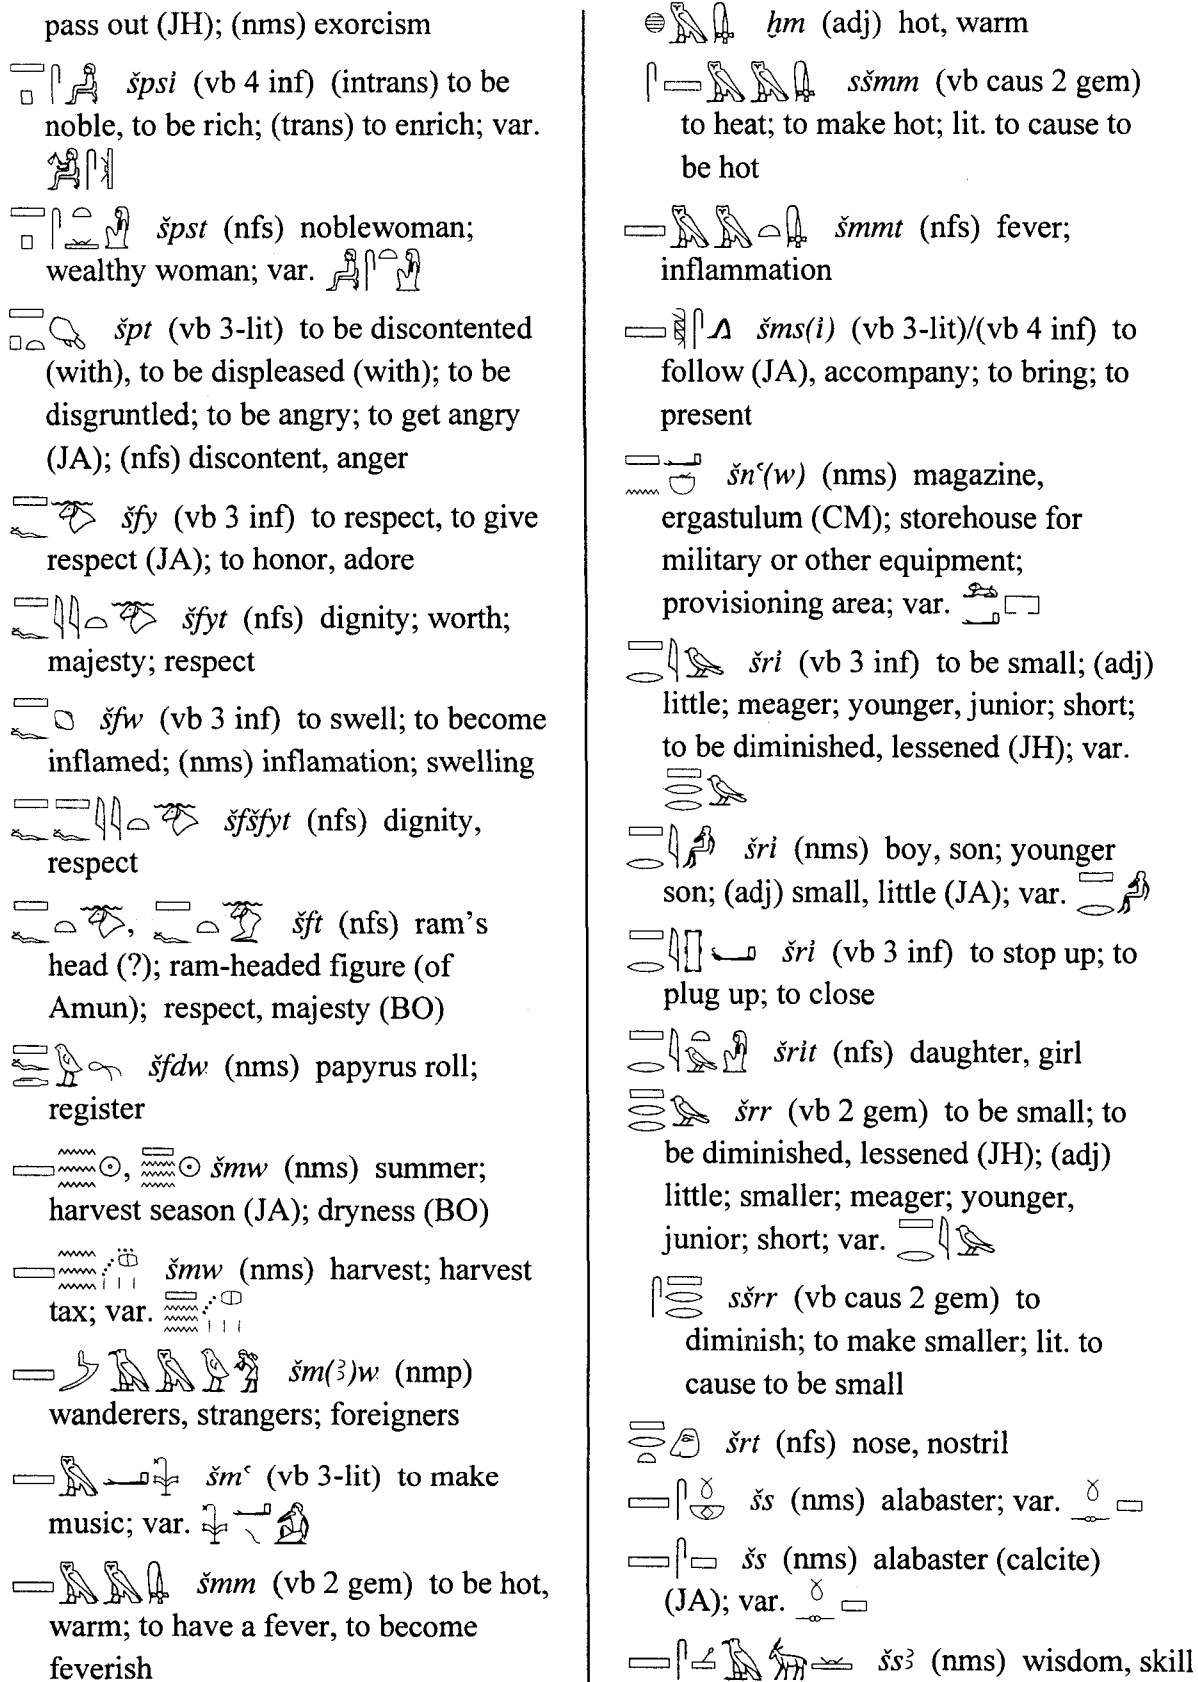 pass out (JH); (nms) exorcism
špsỉ (vb 4 inf) (intrans) to be
noble, to be rich; (trans) to enrich; var.
špst (nfs) noblewoman;
wealthy woman; var.
špt (vb 3-lit) to be discontented
(with), to be displeased (with); to be
disgruntled; to be angry; to get angry
(JA); (nfs) discontent, anger
šfy (vb 3 inf) to respect, to give
respect (JA); to honor, adore
šfyt (nfs) dignity; worth;
majesty; respect
šfw (vb 3 inf) to swell; to become
inflamed; (nms) inflamation; swelling
šfšfyt (nfs) dignity,
respect
, šft (nfs) ram's
head (?); ram-headed figure (of
Amun); respect, majesty (BO)
šfdw (nms) papyrus roll;
register
, šmw (nms) summer;
harvest season (JA); dryness (BO)
šmw (nms) harvest; harvest
tax; var.
šm(ꜣ)w (nmp)
wanderers, strangers; foreigners
šmꜥ (vb 3-lit) to make
music; var.
šmm (vb 2 gem) to be hot,
warm; to have a fever, to become
feverish
ẖm (adj) hot, warm
sšmm (vb caus 2 gem)
to heat; to make hot; lit. to cause to
be hot
šmmt (nfs) fever;
inflammation
šms(ỉ) (vb 3-lit)/(vb 4 inf) to
follow (JA), accompany; to bring; to
present
šnꜥ(w) (nms) magazine,
ergastulum (CM); storehouse for
military or other equipment;
provisioning area; var.
šrỉ (vb 3 inf) to be small; (adj)
little; meager; younger, junior; short;
to be diminished, lessened (JH); var.
šrỉ (nms) boy, son; younger
son; (adj) small, little (JA); var.
šrỉ (vb 3 inf) to stop up; to
plug up; to close
šrỉt (nfs) daughter, girl
šrr (vb 2 gem) to be small; to
be diminished, lessened (JH); (adj)
little; smaller; meager; younger,
junior; short; var.
sšrr (vb caus 2 gem) to
diminish; to make smaller; lit. to
cause to be small
šrt (nfs) nose, nostril
šs (nms) alabaster; var.
šs (nms) alabaster (calcite)
(JA); var.
šsꜣ (nms) wisdom, skill